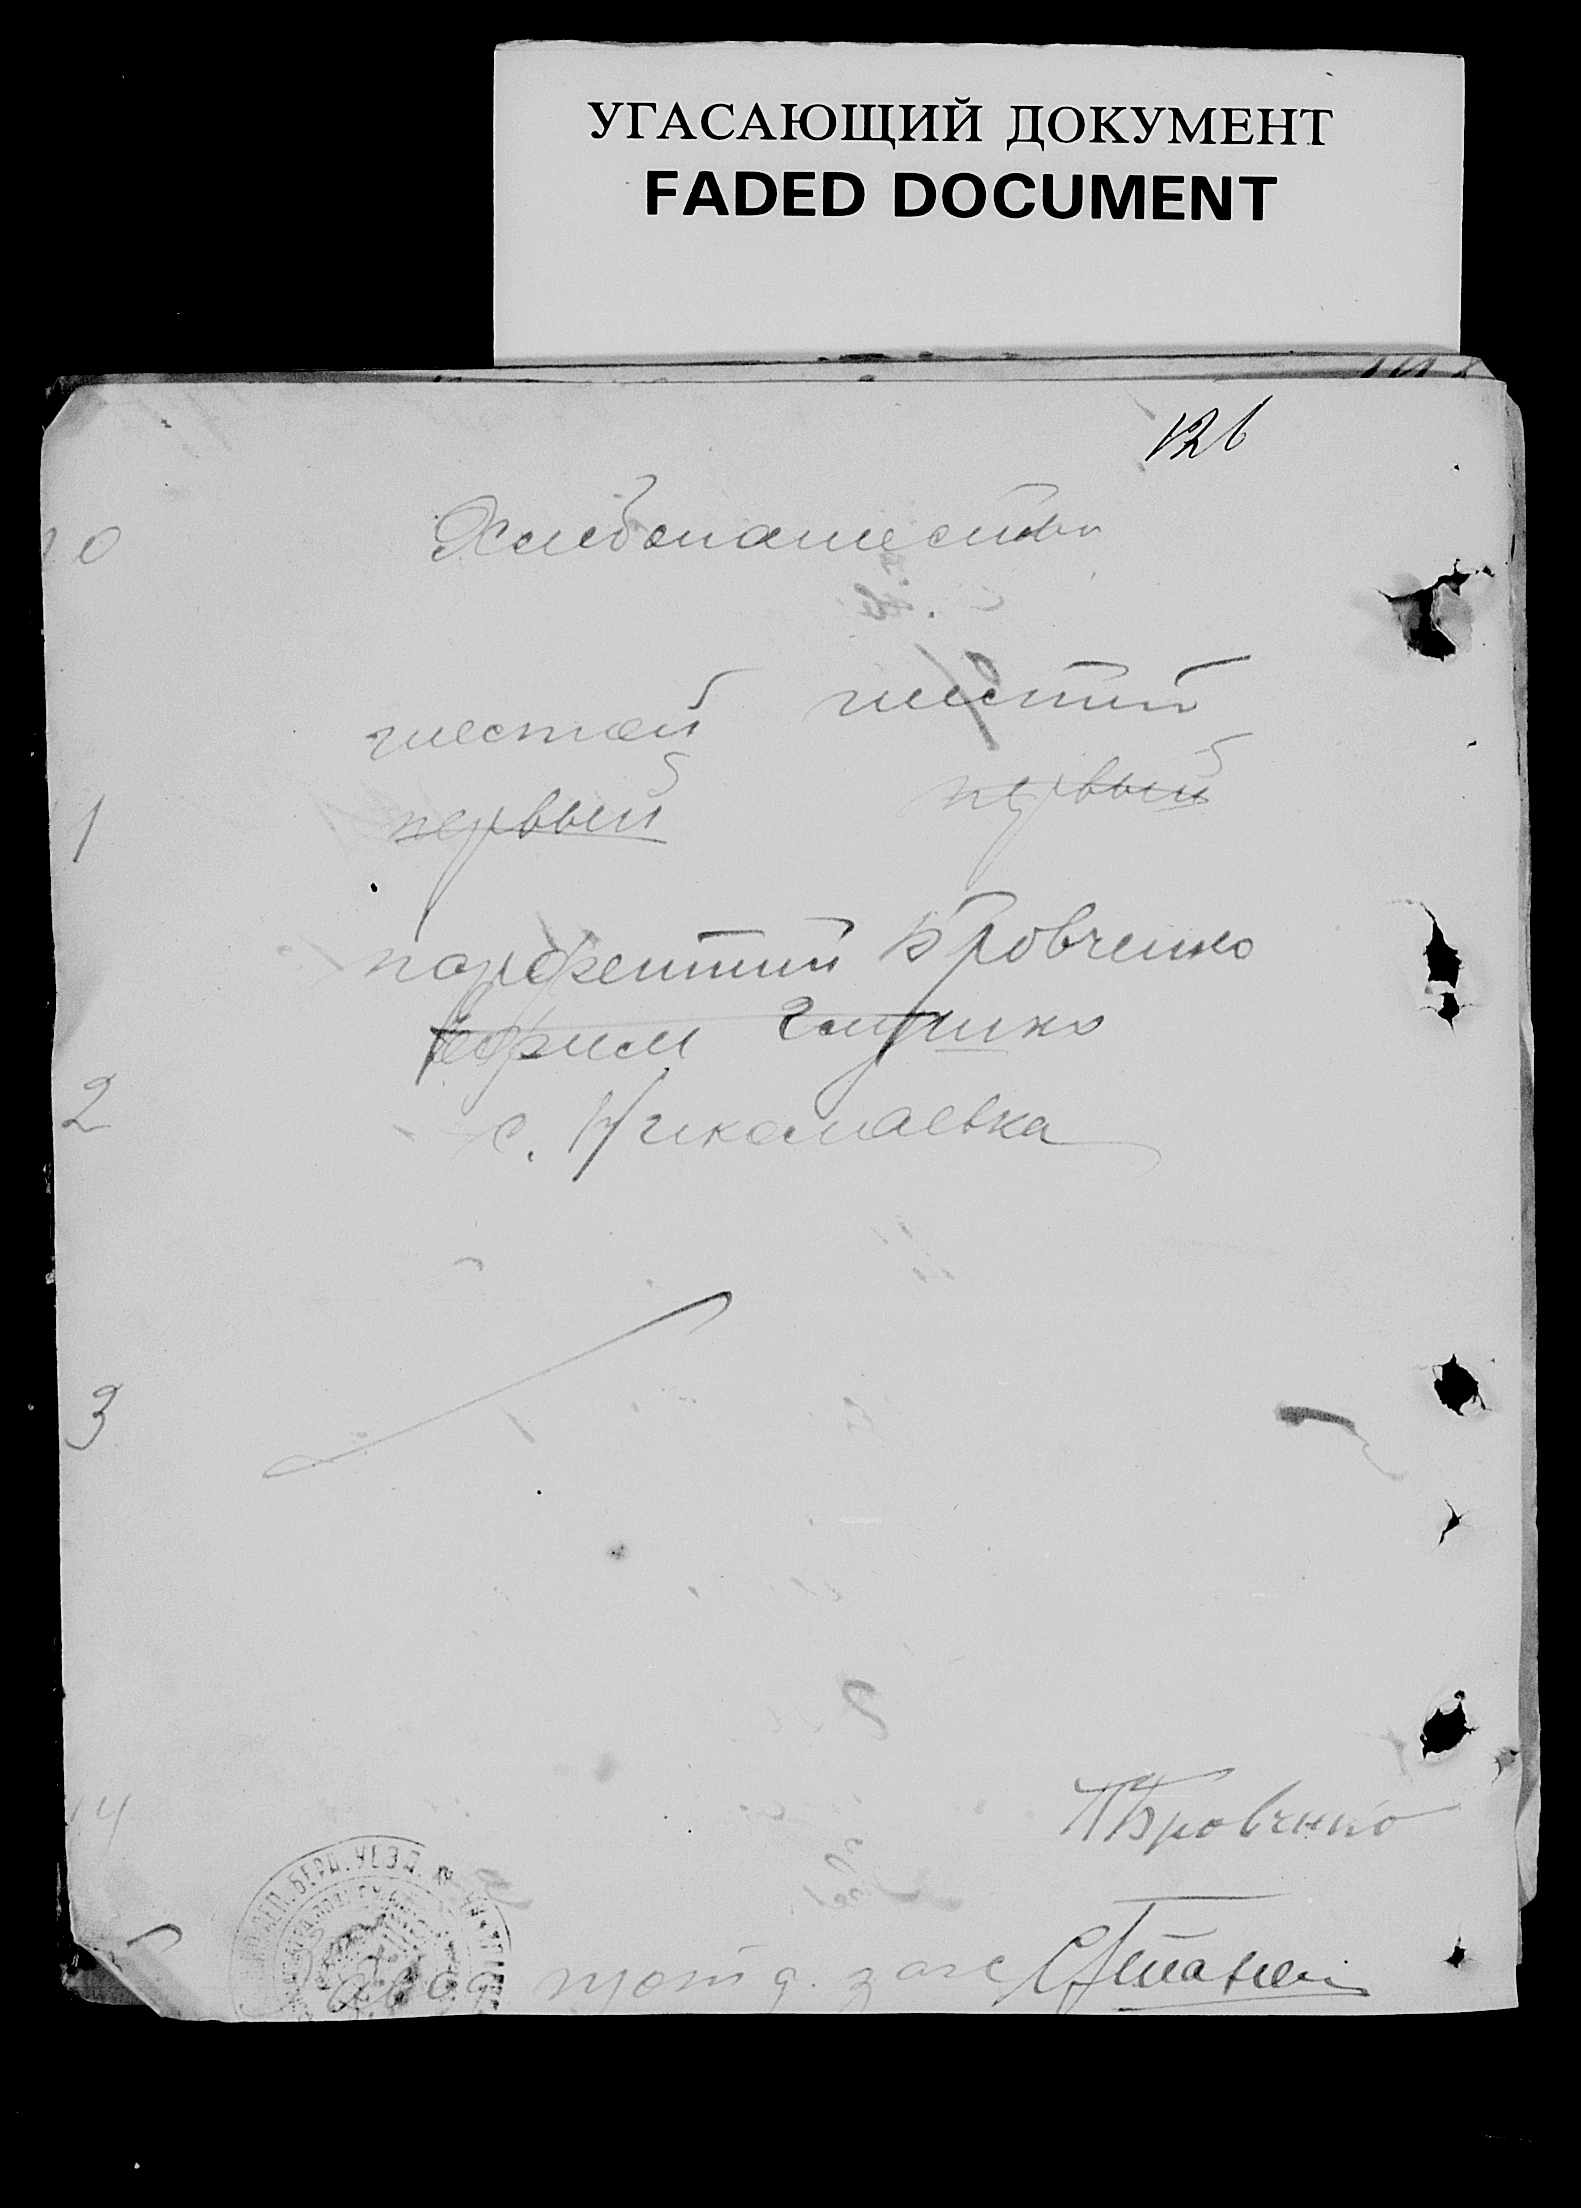 УГАСАЮЩИЙ ДОКУМЕНТ
FADED DOCUMENT
126
10 Хлебопашество
шестой шестий
1 первый первый
парфентий Бровченко
Ефим Глушко
2 с. Николаевка
3
14
ПБровчнко
БЕРД. УЕЗД.
Степанен